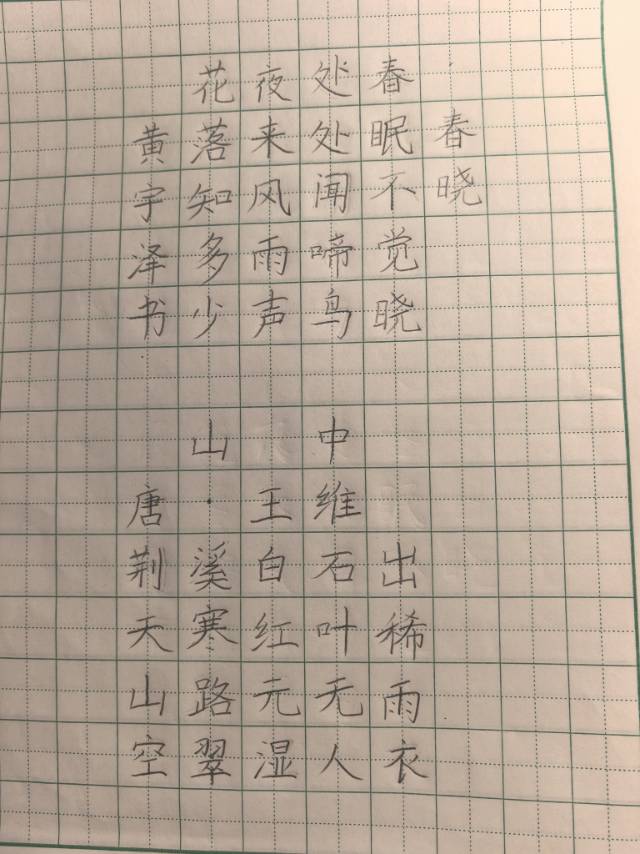 春晓
春眠不觉晓
处处闻啼鸟
夜来风雨声
花落知多少
黄宇泽书
山中
唐·王维
荆溪白石出
天寒红叶稀
山路元无雨
空翠湿人衣